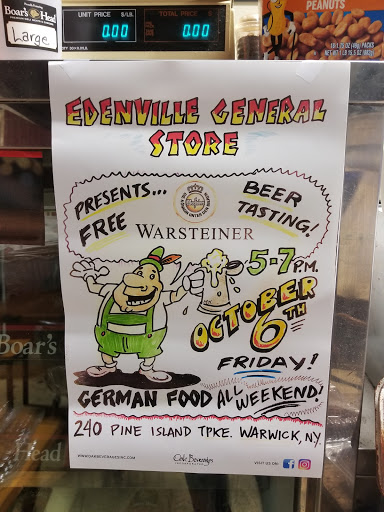 Boar's Head
Large
UNIT PRICE $/LB.
TOTAL PRICE $
0.00
0.00
PEANUTS
EDENVILLE GENERAL
STORE
PRESENTS...
FREE
BEER
TASTING!
WARSTEINER
5-7 P.M.
OCTOBER
6TH
FRIDAY!
GERMAN FOOD ALL WEEKEND!
240 PINE ISLAND TPKE. WARWICK, NY
WWW.OAKBEVERAGESINC.COM
Oak Beverages
INCORPORATED
VISIT US ON:
Boar's
Head